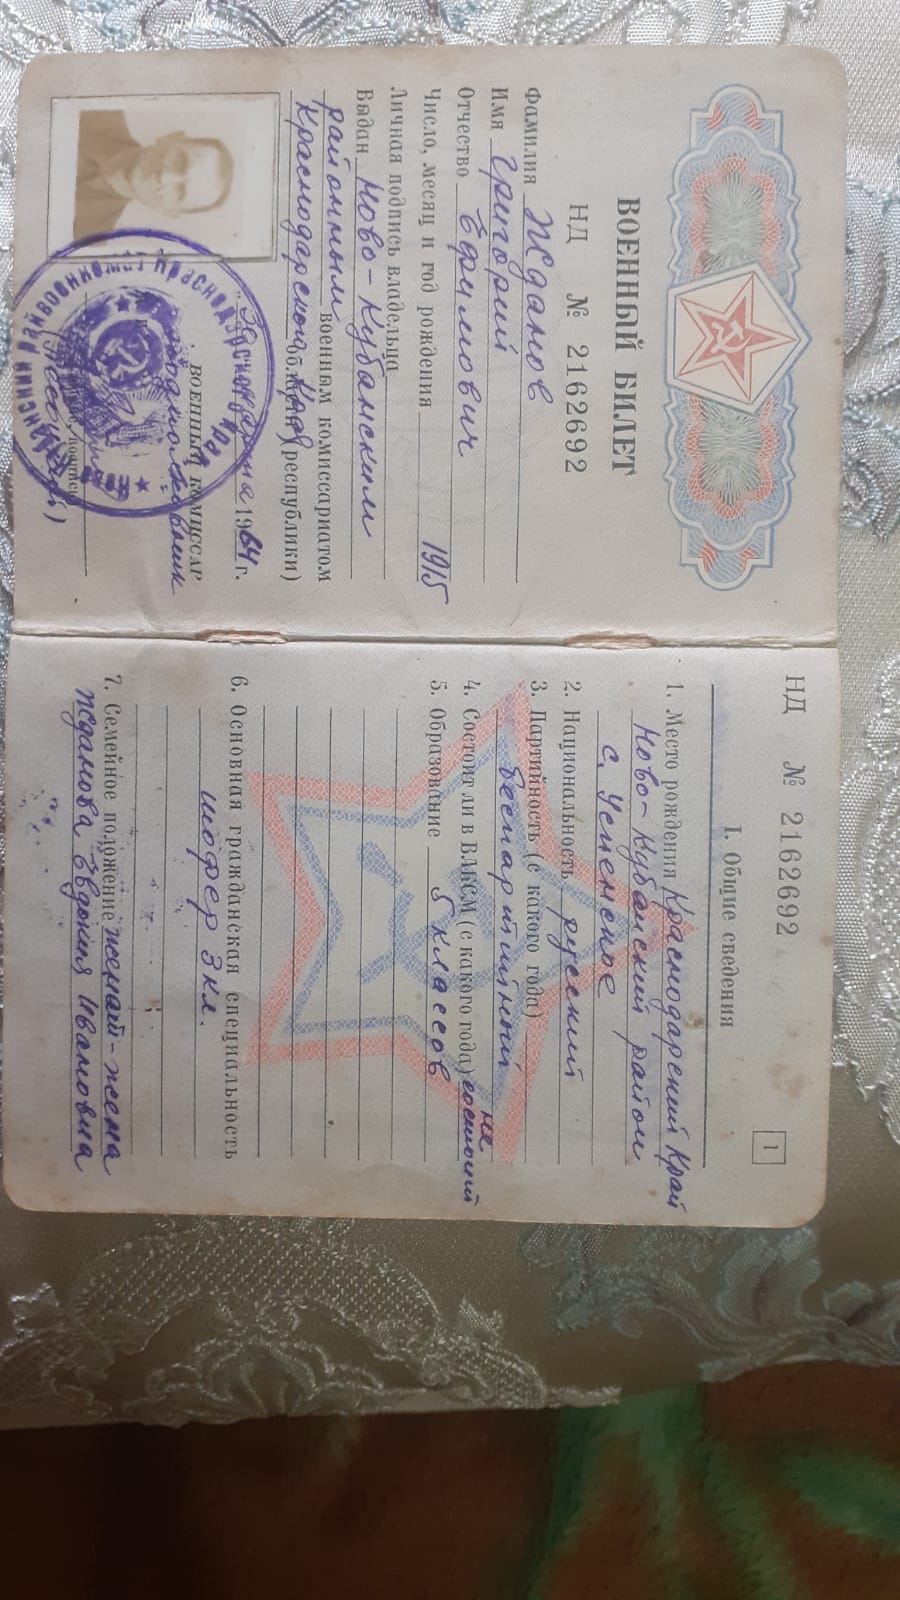 ВОЕННЫЙ БИЛЕТ
НД № 2162692
Фамилия Жданов
Имя Григорий
Отчество Ефимович
Число, месяц и год рождения 1915
Личная подпись владельца
Выдан Ново-Кубанским
районным военным комиссариатом
Краснодарского обл. (края, республики)
марта 1964 г.
ВОЕННЫЙ КОМИССАР
подполковник
НД № 2162692
1
I. Общие сведения
1. Место рождения Краснодарский край
Ново-Кубанский район
с. Успенское
2. Национальность русский
3. Партийность (с какого года)
беспартийный
4. Состоит ли в ВЛКСМ (с какого года) не состоит
5. Образование 5 классов
6. Основная гражданская специальность
шофер 3 кл.
7. Семейное положение женат - жена
Жданова Евдокия Ивановна